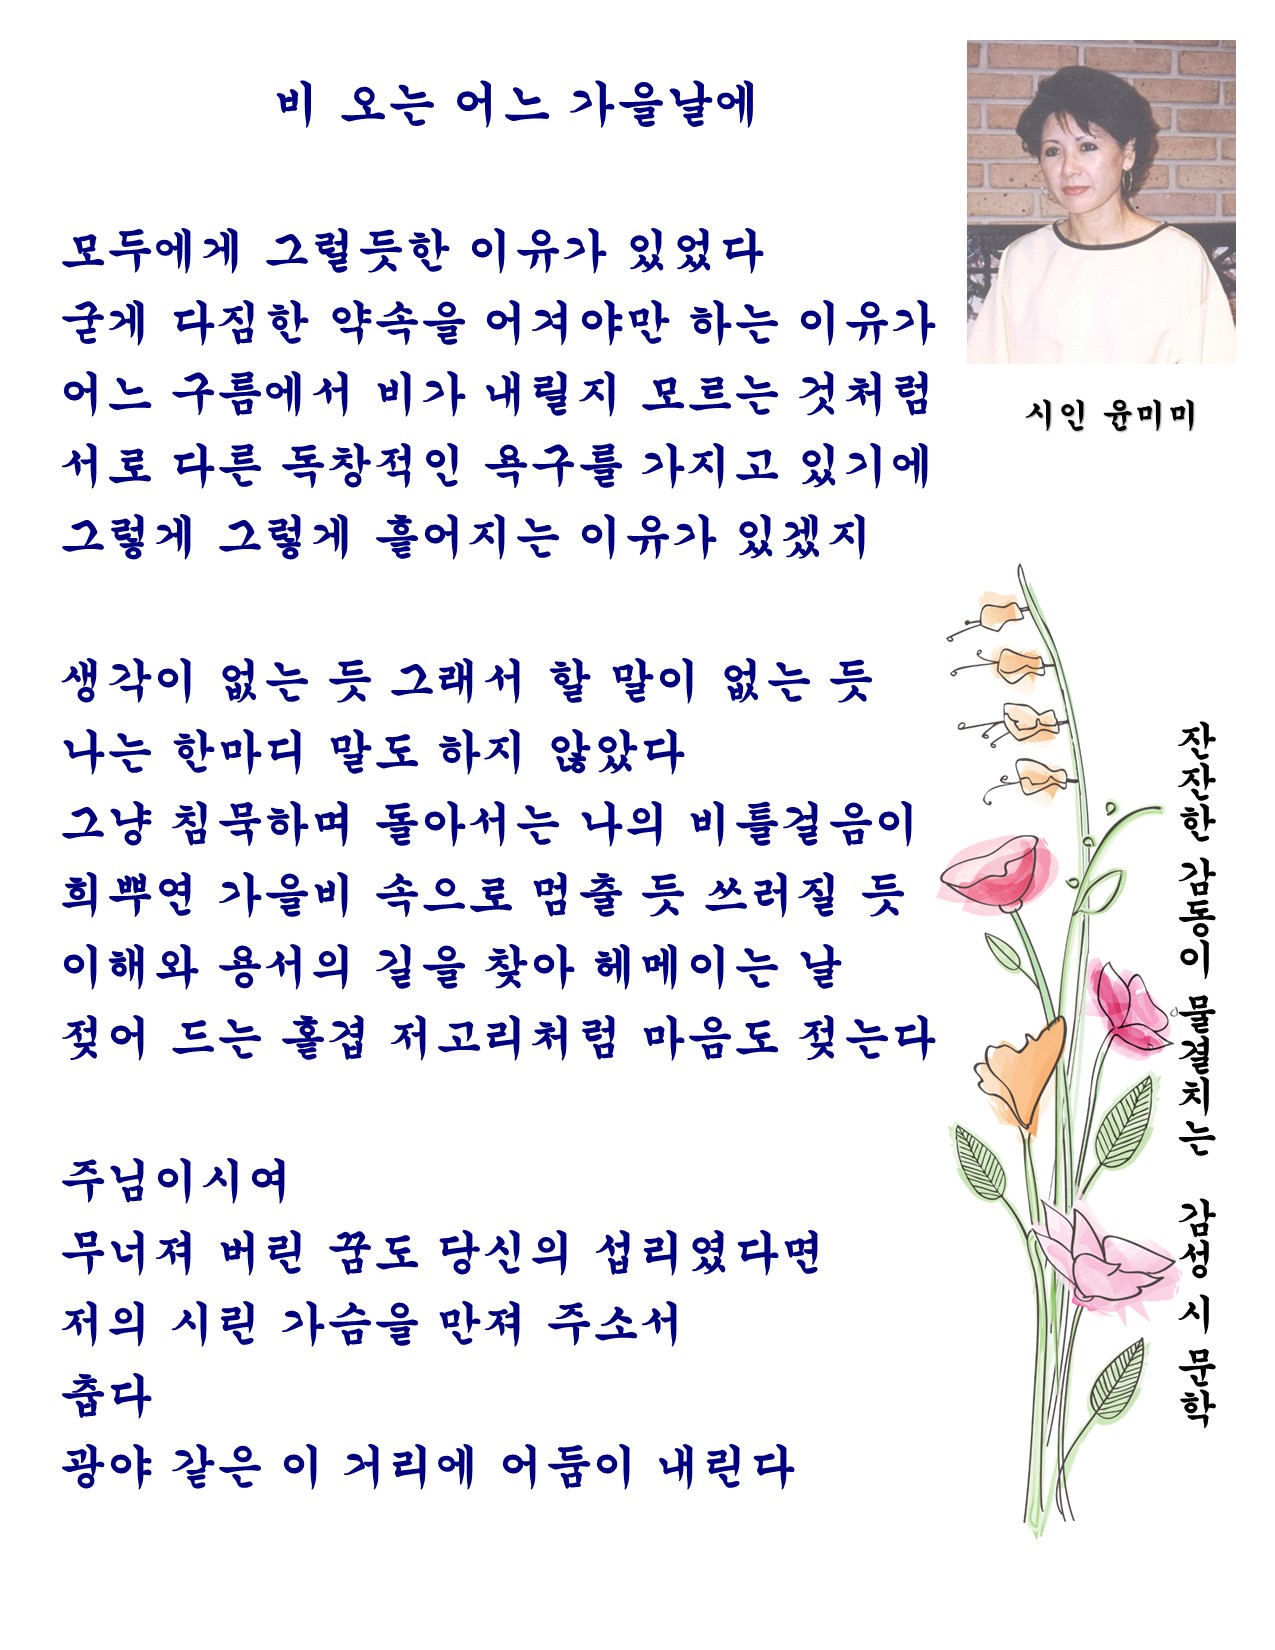 비 오는 어느 가을날에
모두에게 그럴듯한 이유가 있었다
굳게 다짐한 약속을 어겨야만 하는 이유가
어느 구름에서 비가 내릴지 모르는 것처럼
서로 다른 독창적인 욕구를 가지고 있기에
그렇게 그렇게 흩어지는 이유가 있겠지
생각이 없는 듯 그래서 할 말이 없는 듯
나는 한마디 말도 하지 않았다
그냥 침묵하며 돌아서는 나의 비틀걸음이
희뿌연 가을비 속으로 멈출 듯 쓰러질 듯
이해와 용서의 길을 찾아 헤메이는 날
젖어 드는 홑겹 저고리처럼 마음도 젖는다
주님이시여
무너져 버린 꿈도 당신의 섭리였다면
저의 시린 가슴을 만져 주소서
춥다
광야 같은 이 거리에 어둠이 내린다
시인 윤미미
잔잔한 감동이 물결치는 감성 시 문학